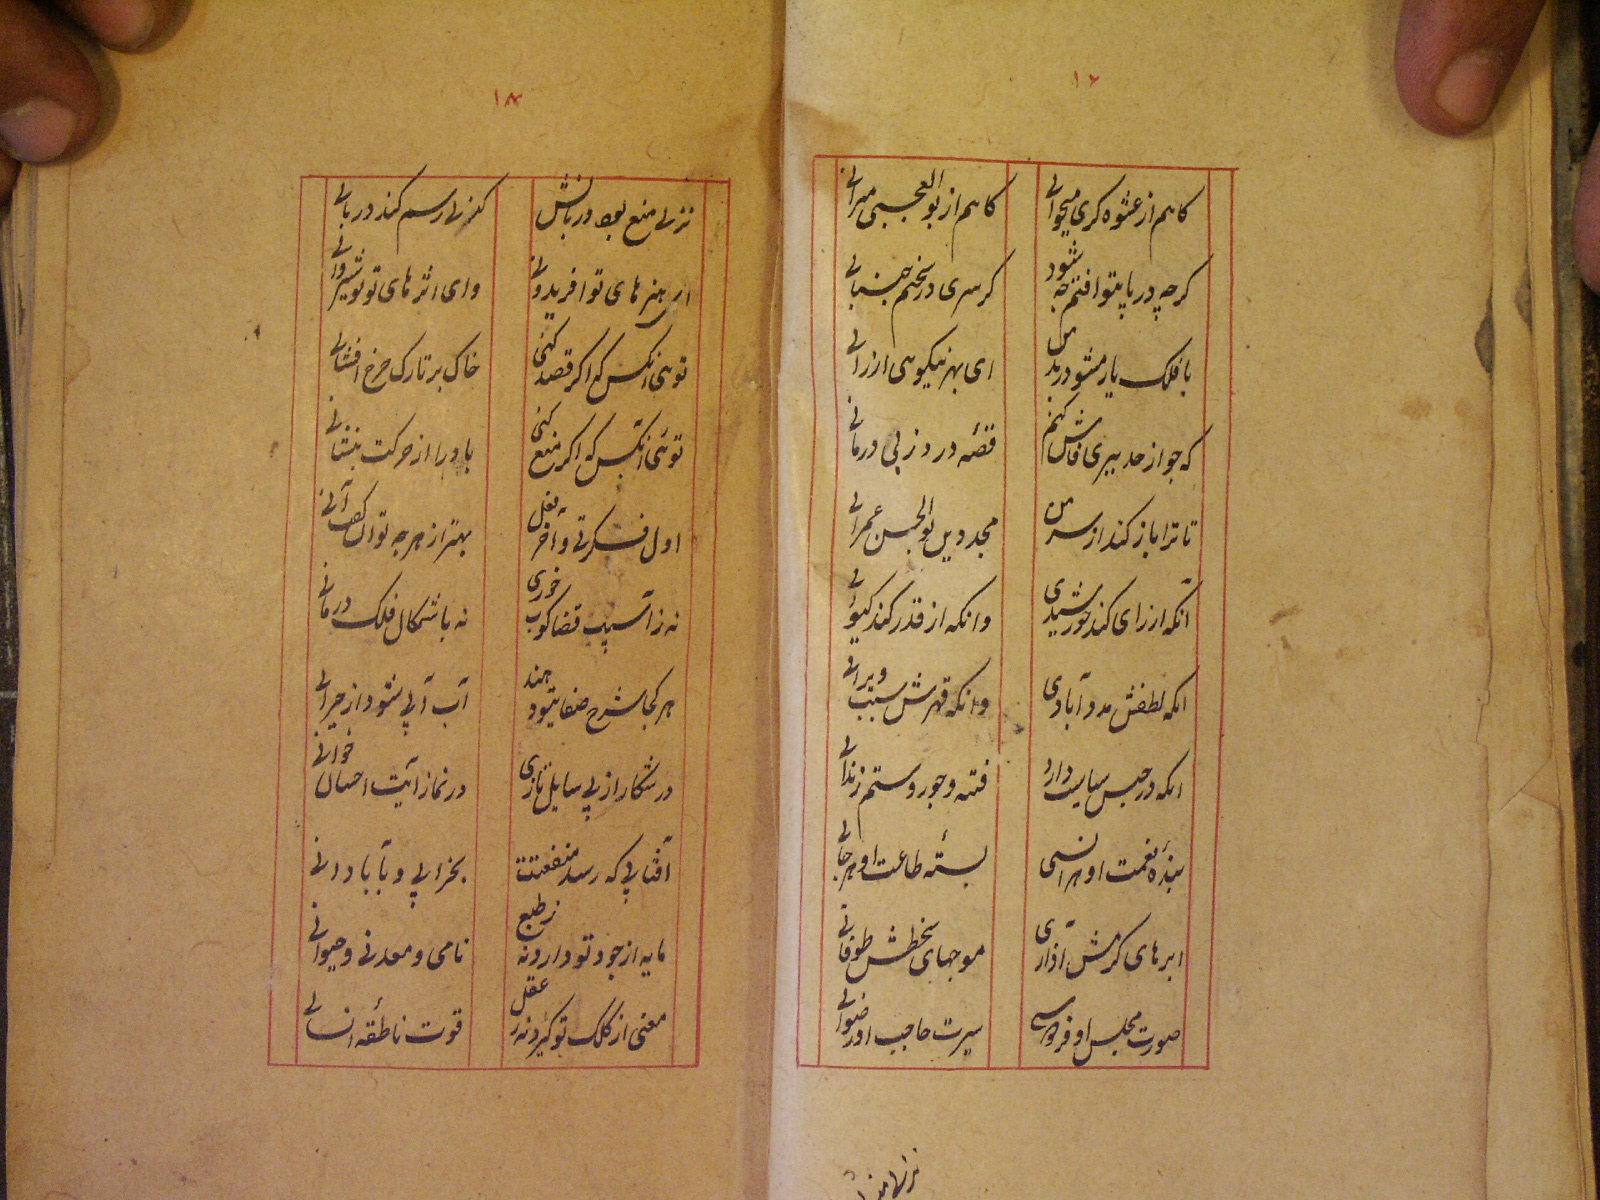 ۱۷
کاهم از عشوه کری میخوانی
کاهم از بوالعجبی میرانی
کرچه در پایتوافتم چه شود
کرسری در سخنم جنبانی
با فلک یار مشو در بد من
ای بهر نیکوهی ارزانی
که جواز حد ببری فاش کنم
قصٔه درد ز بی درمانی
تا ترا باز کند از سر من
مجد دین بوالحسن عمرانی
آنکه از رای کند خورشیدی
وانکه از قدر کند کیوانی
انکه لطفش مدد آبادی
وانکه قهرش سبب ویرانی
انکه در حبس سیاست دارد
فتنه و جور و ستم زندانی
بندهٔ نعمت او هر انسی
بستهٔ طاعت او هر جانی
ابرهای کرمش آذاری
موجهای سخطش طوفانی
صورت مجلس او فردوسی
سیرت حاجب او رضوانی
۱۸
نزپی منع بود دربانش
کزپی رسم کند دربانی
ای هنرهای تو افریدونی
وای اثرهای تو نوشیروانی
توئی انکس که اکر قصد کنی
خاک بر تارک چرخ افشانی
توئی انکس که اکر منع کنی
باد را از حرکت بنشانی
اول فکرتی و آخر فعل
بهتر از هرچه توان کفت آنی
نه ز آسیب قضا کوب خوری
نه باشکال فلک درمانی
هر کجا شرح صفایتو دهند
آب آبی شود از حیرانی
در شکار از پی سایل تازی
در نماز آیت احسان خوانی
آفتابی که رسد منفعتت
بخرابی و بآبادانی
مایه از جود تو دارد نه ز طبع
نامی و معدنی و حیوانی
معنی از کلک تو کیرد نه ز عقل
قوت ناطقٔه انسانی